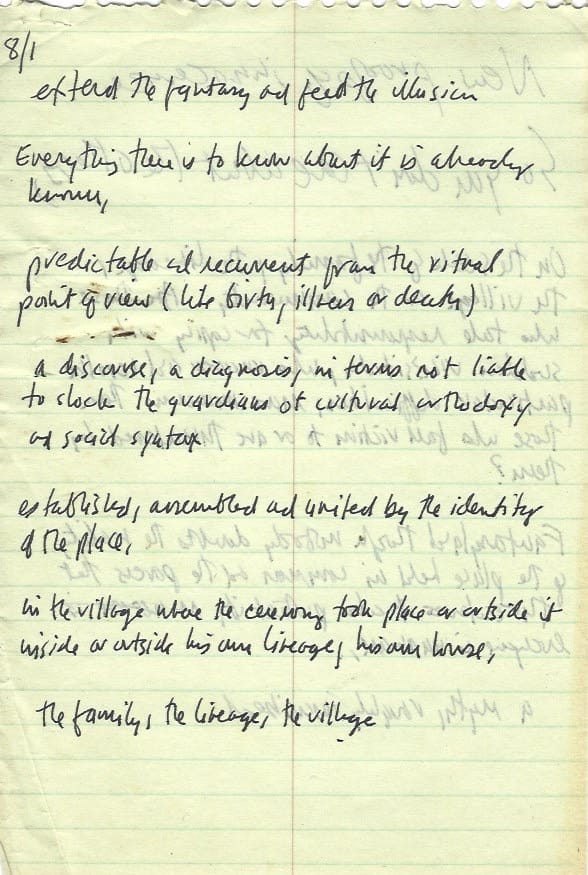 8/1
extend the fantasy and feed the illusion
Everything there is to know about it is already
known,
predictable and recurrent from the ritual
point of view (like birth, illness or death)
a discourse, a diagnosis, in terms not liable
to shock the guardians of cultural orthodoxy
and social syntax
established, assembled and united by the identity
of the place,
in the village where the ceremony took place or outside it
inside or outside his own lineage, his own house,
the family, the lineage, the village